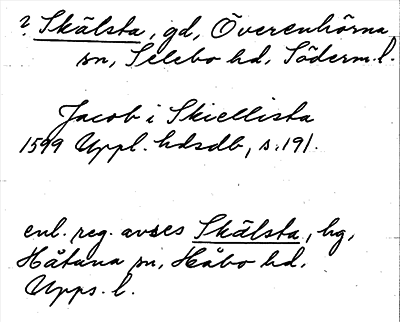 ? Skälsta, gd, Överenhörna
sn, Selebo hd, Söderm.l.
Jacob i Skiellista
1599 Uppl. hdsdb, s. 191.
enl. reg. avses Skälsta, by,
Håtuna sn, Håbo hd,
Upps. l.